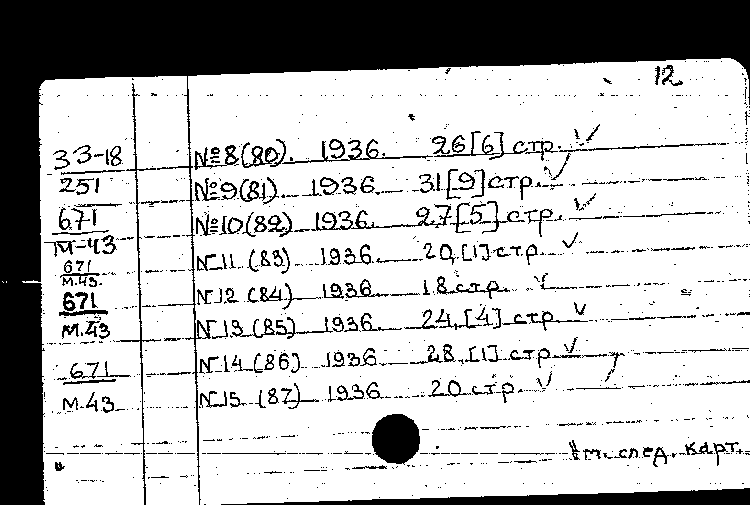 12
33-18 №8(80). 1936. 26[6] стр. ✓
251 №9(81). 1936. 31[9] стр. ✓
671 №10(82) 1936. 27[5] стр. ✓
М-43
671 №11 (83) 1936. 20,[1] стр. ✓
М.43.
671 №12 (84) 1936. 18 стр. ✓
М.43 №13 (85) 1936. 24,[4] стр. ✓
671 №14 (86) 1936 28,[1] стр. ✓
М.43 №15 (87) 1936. 20 стр. ✓
след. карт.